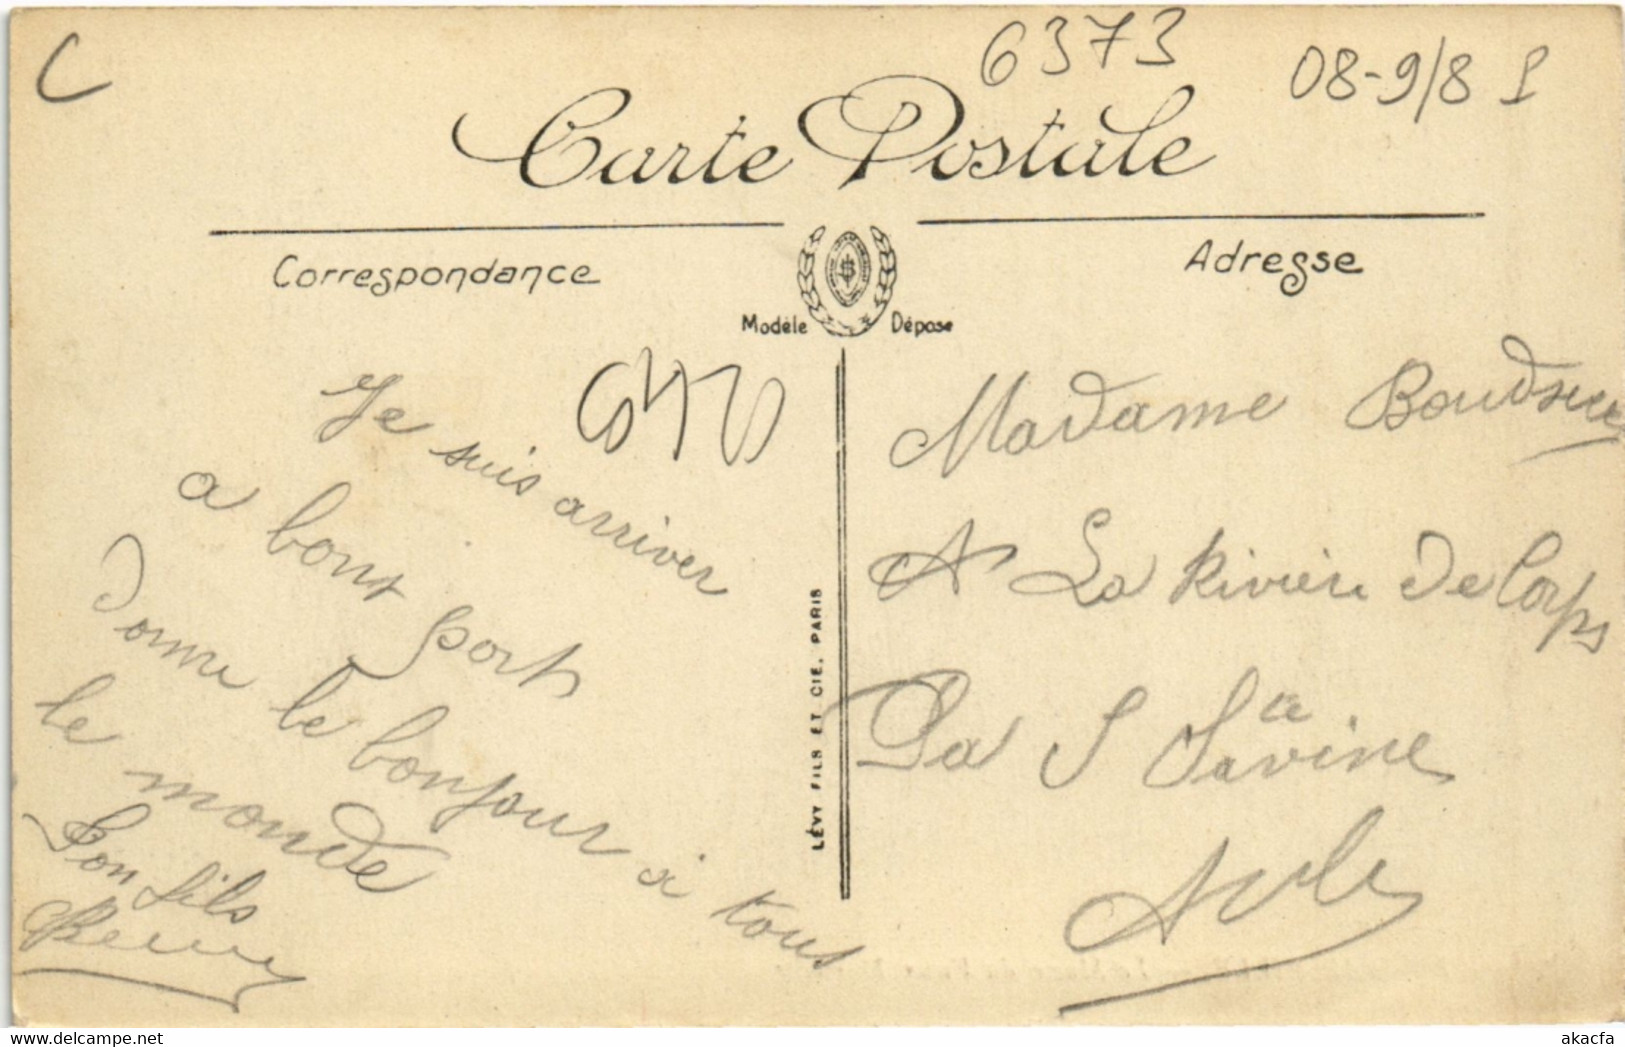 C
6373
08-9/8
Carte Postale
Correspondance
Adresse
Modèle Déposé
Je suis arriver
a bont port
donne le bonjour à tous
le monde
Ton fils
LÉVY FILS ET CIE, PARIS
Madame
A La Rivière de Corps
Pa Ste Savine
Aube
akacfa